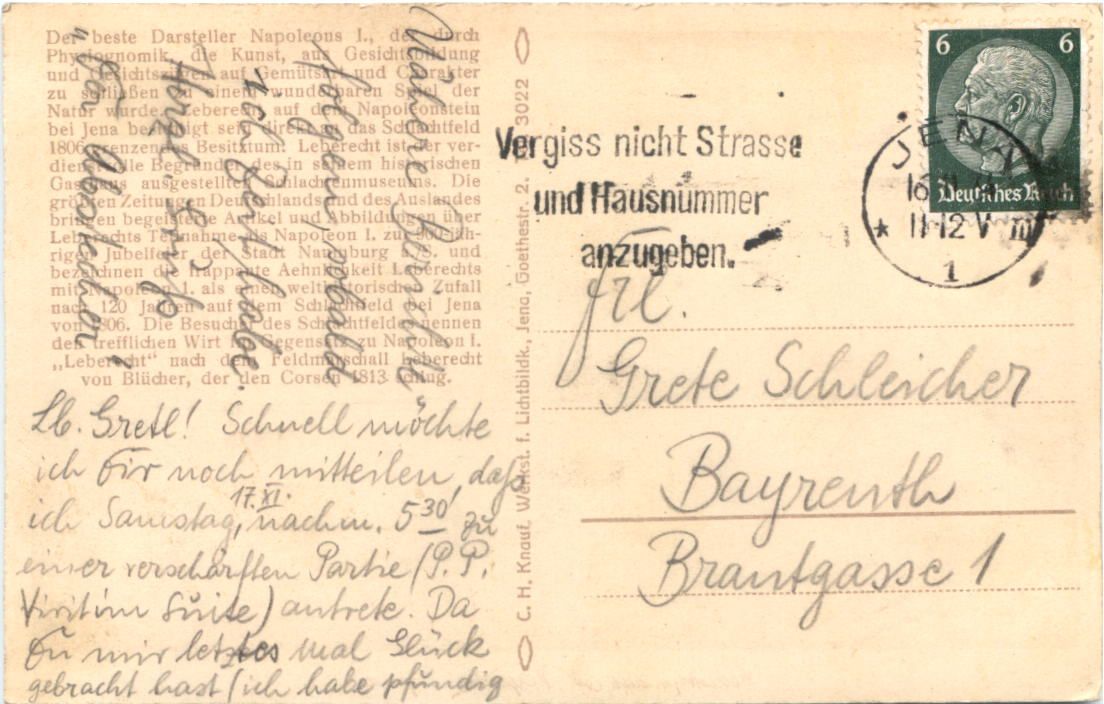 Der beste Darsteller Napoleons I., der durch
Physiognomik, die Kunst, aus Gesichtsbildung
und Gesichtszügen auf Gemütsart und Charakter
zu schließen zu einem wunderbaren Spiel der
Natur wurde. Leberecht auf dem Napoleonstein
bei Jena berechtigt sein direkt an das Schlachtfeld
1806 grenzendes Besitztum. Leberecht ist der ver-
dienstvolle Begründer des in seinem historischen
Gasthaus ausgestellten Schlachtenmuseums. Die
größten Zeitungen Deutschlands und des Auslandes
bringen begeisterte Artikel und Abbildungen über
Leberechts Teilnahme als Napoleon I. zur 900 jäh-
rigen Jubelfeier der Stadt Naumburg a./S. und
bezeichnen die frappante Aehnlichkeit Leberechts
mit Napoleon I. als einen welthistorischen Zufall
nach 120 Jahren auf dem Schlachtfeld bei Jena
von 1806. Die Besucher des Schlachtfeldes nennen
den trefflichen Wirt im Gegensatz zu Napoleon I.
„Leberecht" nach dem Feldmarschall Leberecht
von Blücher, der den Corsen 1813 schlug.
Lb. Gretl! Schnell möchte
ich Dir noch mitteilen, daß
ich Samstag, 17. XI. nachm. 5 30 zu
einer verschärften Partie (P. P.
Visit im Suite) antrete. Da
Du mir letztes mal Glück
gebracht hast (ich habe pfundig
C. H. Knauf, Werkst. f. Lichtbildk., Jena, Goethestr. 2. 3022
Vergiss nicht Strasse
und Hausnummer
anzugeben.
JENA
11-12 V
1
6 6
Deutsches Reich
Frl.
Grete Schleicher
Bayreuth
Brautgasse 1